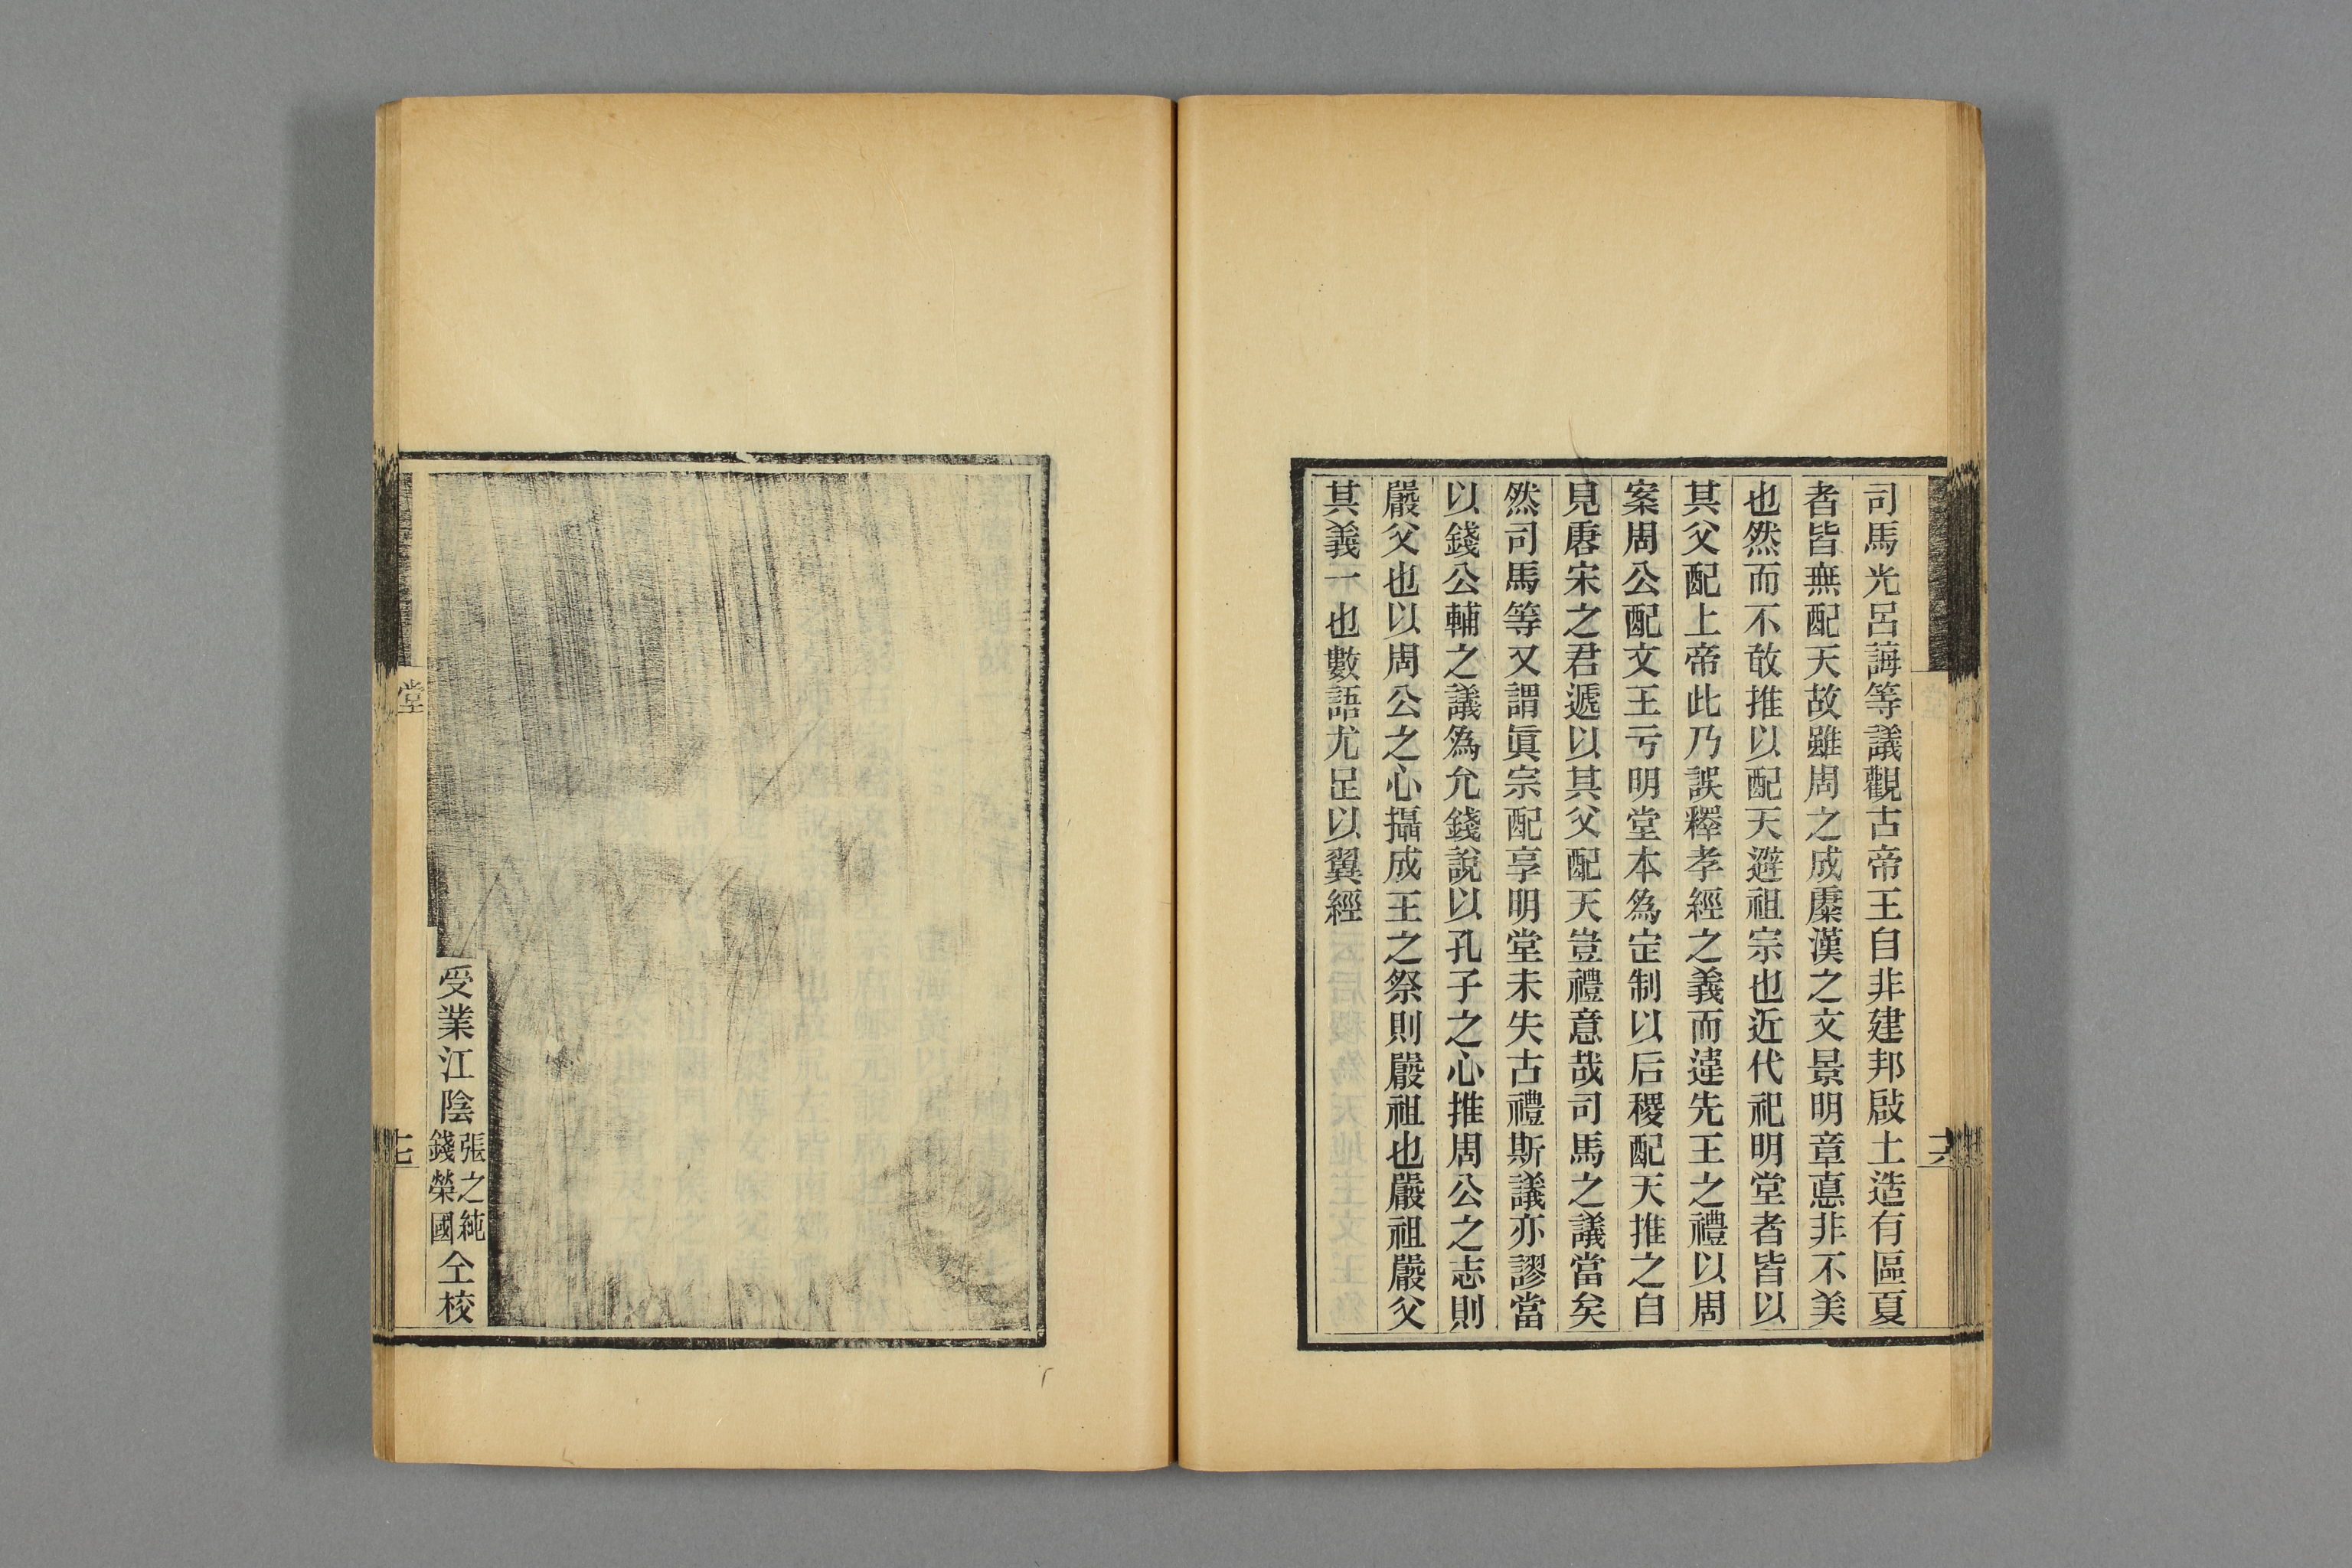 司馬光呂誨等議觀古帝王自非建邦啟土造有區夏
者皆無配天故雖周之成康漢之文景明章悳非不美
也然而不敢推以配天避祖宗也近代祀明堂者皆以
其父配上帝此乃誤釋孝經之義而違先王之禮以周
案周公配文王亏明堂本為定制以后稷配天推之自
見唐宋之君遞以其父配天豈禮意哉司馬之議當矣
然司馬等又謂眞宗配享明堂未失古禮斯議亦謬當
以錢公輔之議為允錢說以孔子之心推周公之志則
嚴父也以周公之心攝成王之祭則嚴祖也嚴祖嚴父
其義一也數語尤足以翼經
十六
堂
十七
受業江陰張之純錢榮國仝校